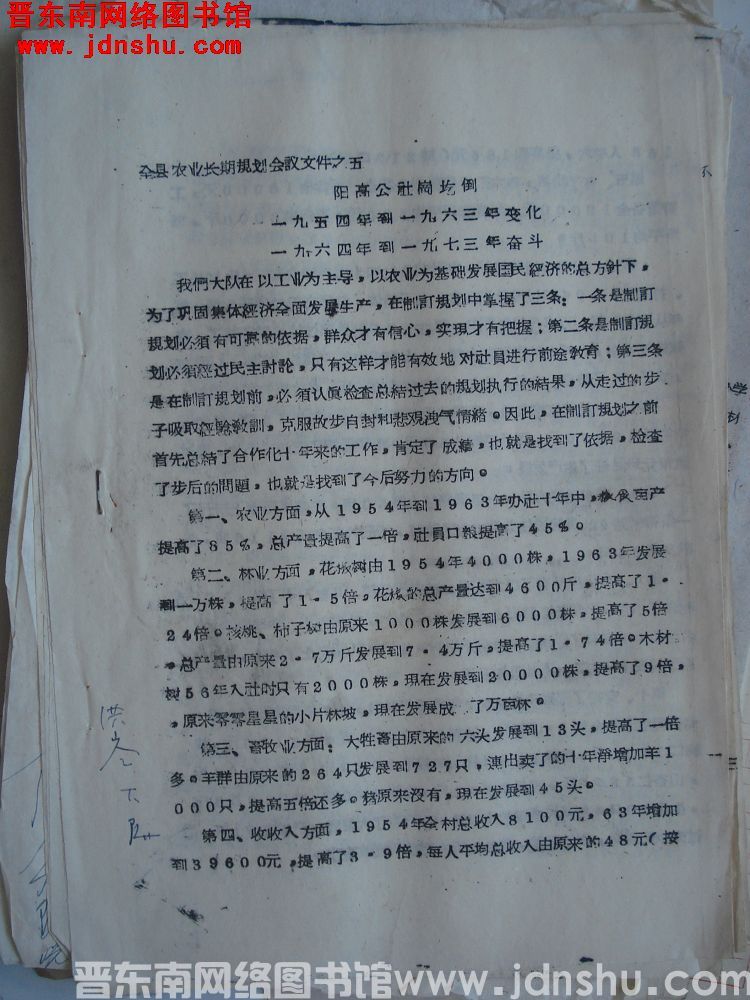 晋东南网络图书馆
www.jdnshu.com
全县农业长期规划会议文件之五
阳高公社岗圪倒
一九五四年到一九六三年变化
一九六四年到一九七三年奋斗
我們大队在以工业为主导，以农业为基础发展国民經济的总方針下，
为了巩固集体經济全面发展生产，在制訂规划中掌握了三条：一条是制訂
规划必須有可靠的依据，群众才有信心，实现才有把握；第二条是制訂规
划必須經过民主討論，只有这样才能有效地对社員进行前途教育；第三条
是在制訂规划前，必须认眞检查总結过去的规划执行的結果，从走过的步
子吸取經驗敎訓，克服故步自封和悲观洩气情緒。因此，在制訂规划之前
首先总結了合作化十年来的工作，肯定了成績，也就是找到了依据，检查
了步后的問題，也就是找到了今后努力的方向。
第一、农业方面，从1954年到1963年办社十年中，粮食亩产
提高了85%，总产量提高了一倍，社員口粮提高了45%。
第二、林业方面，花椒树由1954年4000株，1963年发展
到一万株，提高了1·5倍，花椒的总产量达到4600斤，提高了1·
24倍。核桃、柿子树由原来1000株发展到6000株，提高了5倍
，总产量由原来2·7万斤发展到7·4万斤，提高了1·74倍。木材
树56年入社时只有2000株，现在发展到20000株，提高了9倍，
，原来零零星星的小片林坡，现在发展成 了万亩林。
第三、畜牧业方面：大牲畜由原来的六头发展到13头，提高了一倍
多。羊群由原来的264只发展到727只，連出卖了的十年淨增加羊1
000只，提高五倍还多。猪原来沒有，現在发展到45头。
第四、收收入方面，1954年全村总收入8100元，63年增加
到39600元，提高了3·9倍，每人平均总收入由原来的48元（按
晋东南网络图书馆www.jdnshu.com